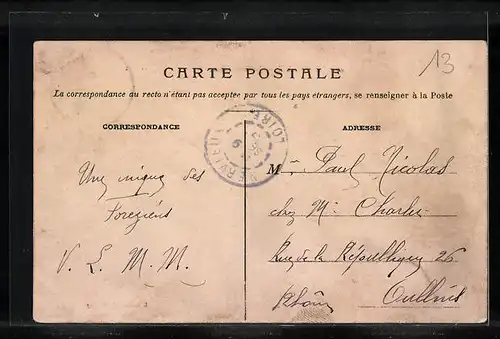 13
CARTE POSTALE
La correspondance au recto n'étant pas acceptée par tous les pays étrangers, se renseigner à la Poste
CORRESPONDANCE
ADRESSE
LOIRE
Une des
Foreziens
V. L. M. M.
M Paul Nicolas
chez Mr Charles
Rue de la République 26
Oullins
Rhône